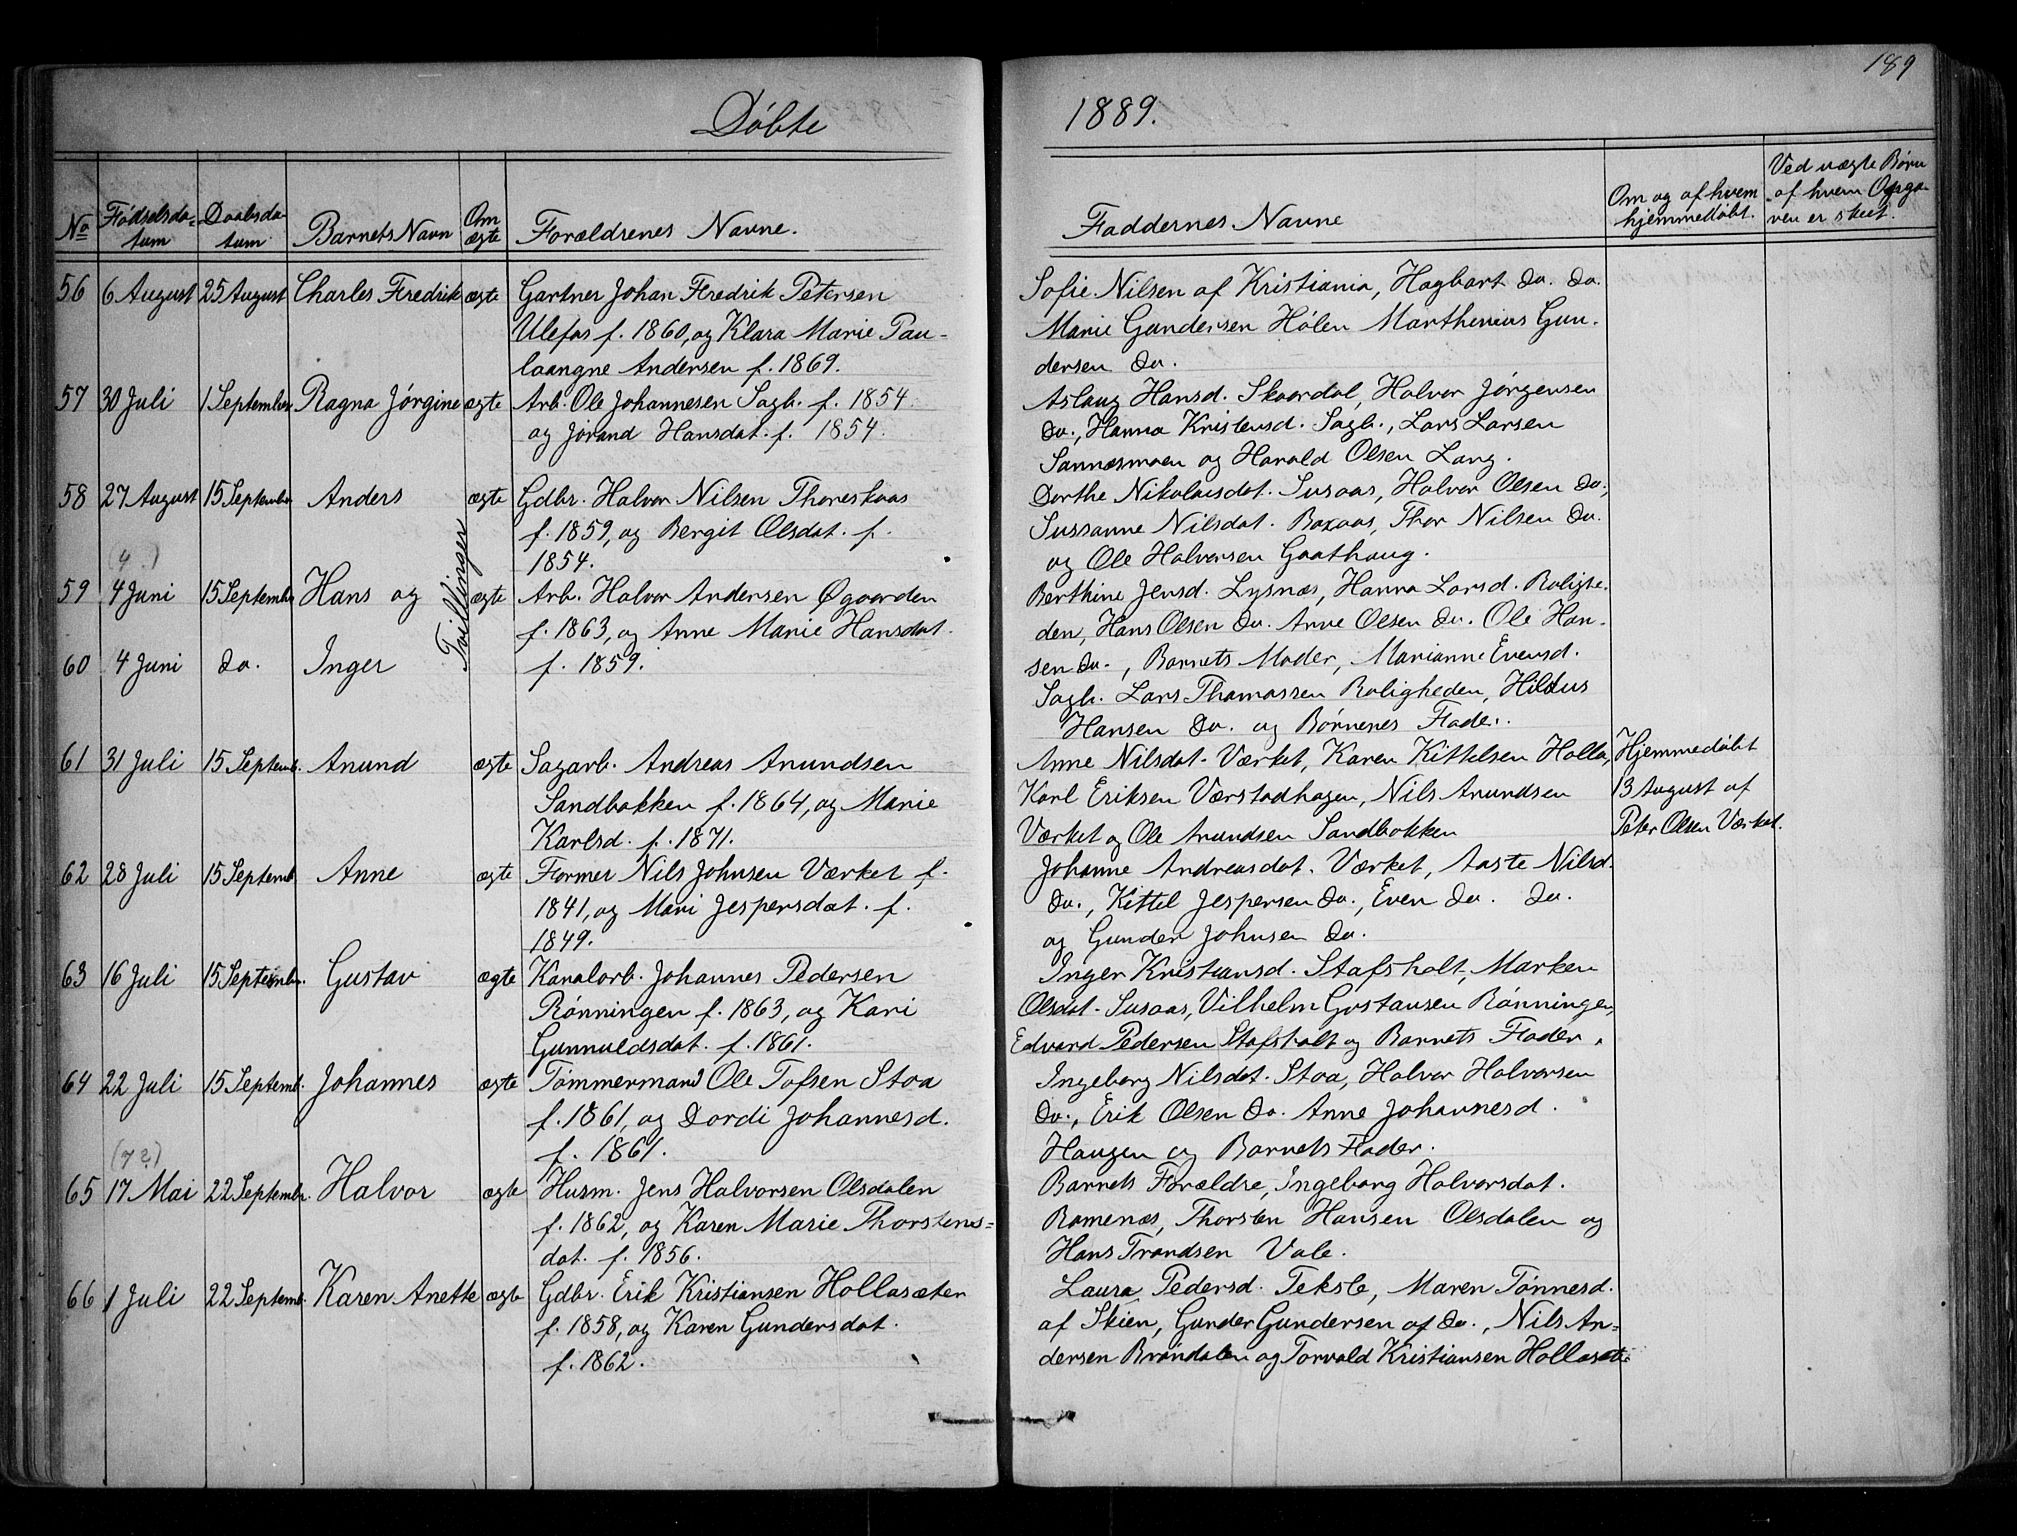 189
Döbte 1889.
No
Födselsda-
tum
Daabsda-
tum
Barnets Navn
Om
ægte
Forældrenes Navne.
Faddernes Navne
Om og af hvem
hjemmedöbt.
Ved uægte Börn
af hvem Opga-
ven er skeet.
56 6 August 25 August Charles Fredrik ægte Gartner Johan Fredrik Petersen
Ulefos f. 1860, og Klara Marie Pau-
laangne Andersen f. 1869.
Sofie Nilsen af Kristiania, Hagbart Do. Do.
Marie Gundersen Hölen Marthenius Gun-
dersen Do.
57 30 Juli 1 September Ragna Jörgine ægte Arb. Ole Johannesen Sagb. f. 1854
og Jorand Hansdat. f. 1854.
Aslaug Hansd. Skaardal, Halvor Jörgensen
Do., Hanna Kristensd. Sagb., Lars Larsen
Sannæsmoen og Harald Olsen Lang.
58 27 August 15 September Anders ægte Gdbr. Halvor Nilsen Thoreskaas
f. 1859, og Bergit Olsdat. f.
1854.
Dorthe Nikolaisdat. Susaas, Halvor Olsen Do.,
Sussanne Nilsdat. Baxaas, Thor Nilsen Do.
og Ole Halvorsen Gaathaug.
(4 )
59 4 Juni 15 Septembr Hans og ægte Arb. Halvor Andersen Øgaarden
f. 1863, og Anne Marie Hansdat.
60 4 Juni do. Inger f. 1859.
Tvillinger
Berthine Jensd. Lysnæs, Hanna Larsd. Roligte-
den, Hans Olsen Do. Anne Olsen Do. Ole Han-
sen Do., Barnets Moder, Marianne Evensd.
Sagb. Lars Thomassen Roligheden, Hildus
Hansen Do. og Börnenes Fader.
61 31 Juli 15 Septemb. Anund ægte Sagarb. Andreas Anundsen
Sandbakken f. 1864, og Marie
Karlsd. f. 1871.
Anne Nilsdat. Værket, Karen Kittelsen Holla,
Karl Eriksen Værstadhagen, Nils Anundsen
Værket og Ole Anundsen Sandbakken
Hjemmedöbt
13 August af
Peter Olsen Værket.
62 28 Juli 15 Septemb Anne ægte Former Nils Johnsen Værket f.
1841, og Mari Jespersdat. f.
1849.
Johanne Andreasdat. Værket, Aaste Nilsd.
Do., Kittel Jespersen Do., Even Do. Do.
og Gunder Johnsen Do.
63 16 Juli 15 Septembr. Gustav ægte Kanalarb. Johannes Pedersen
Rönningen f. 1863, og Kari
Gunnuldsdat. f. 1861.
Inger Kristiansd. Stafsholt, Marken
Olsdat. Susaas, Vilhelm Gustausen Rönningen,
Edvard Pedersen Stafsholt og Barnets Fader.
64 22 Juli 15 Septemb. Johannes ægte Tömmermand Ole Tofsen Stoa
f. 1861, og Dordi Johannesd.
f. 1861.
Ingeborg Nilsdat. Stoa, Halvor Halvorsen
Do., Erik Olsen Do. Anne Johannesd.
Haugen og Barnets Fader.
(7?)
65 17 Mai 22 Septembr. Halvor ægte Husm. Jens Halvorsen Olsdalen
f. 1862, og Karen Marie Thorstens-
dat. f. 1856.
Barnets Forældre, Ingeborg Halvorsdat.
Romenæs, Thorsten Hansen Olsdalen og
Hans Trandsen Vale.
66 1 Juli 22 Septemb. Karen Anette ægte Gdbr. Erik Kristiansen Hollasæter
f. 1858, og Karen Gundersdat.
f. 1862.
Laura Pedersd. Teksle, Maren Tönnesd.
af Skien, Gunder Gundersen af Do., Nils An-
dersen Bröndalen og Torvald Kristiansen Hollasæte